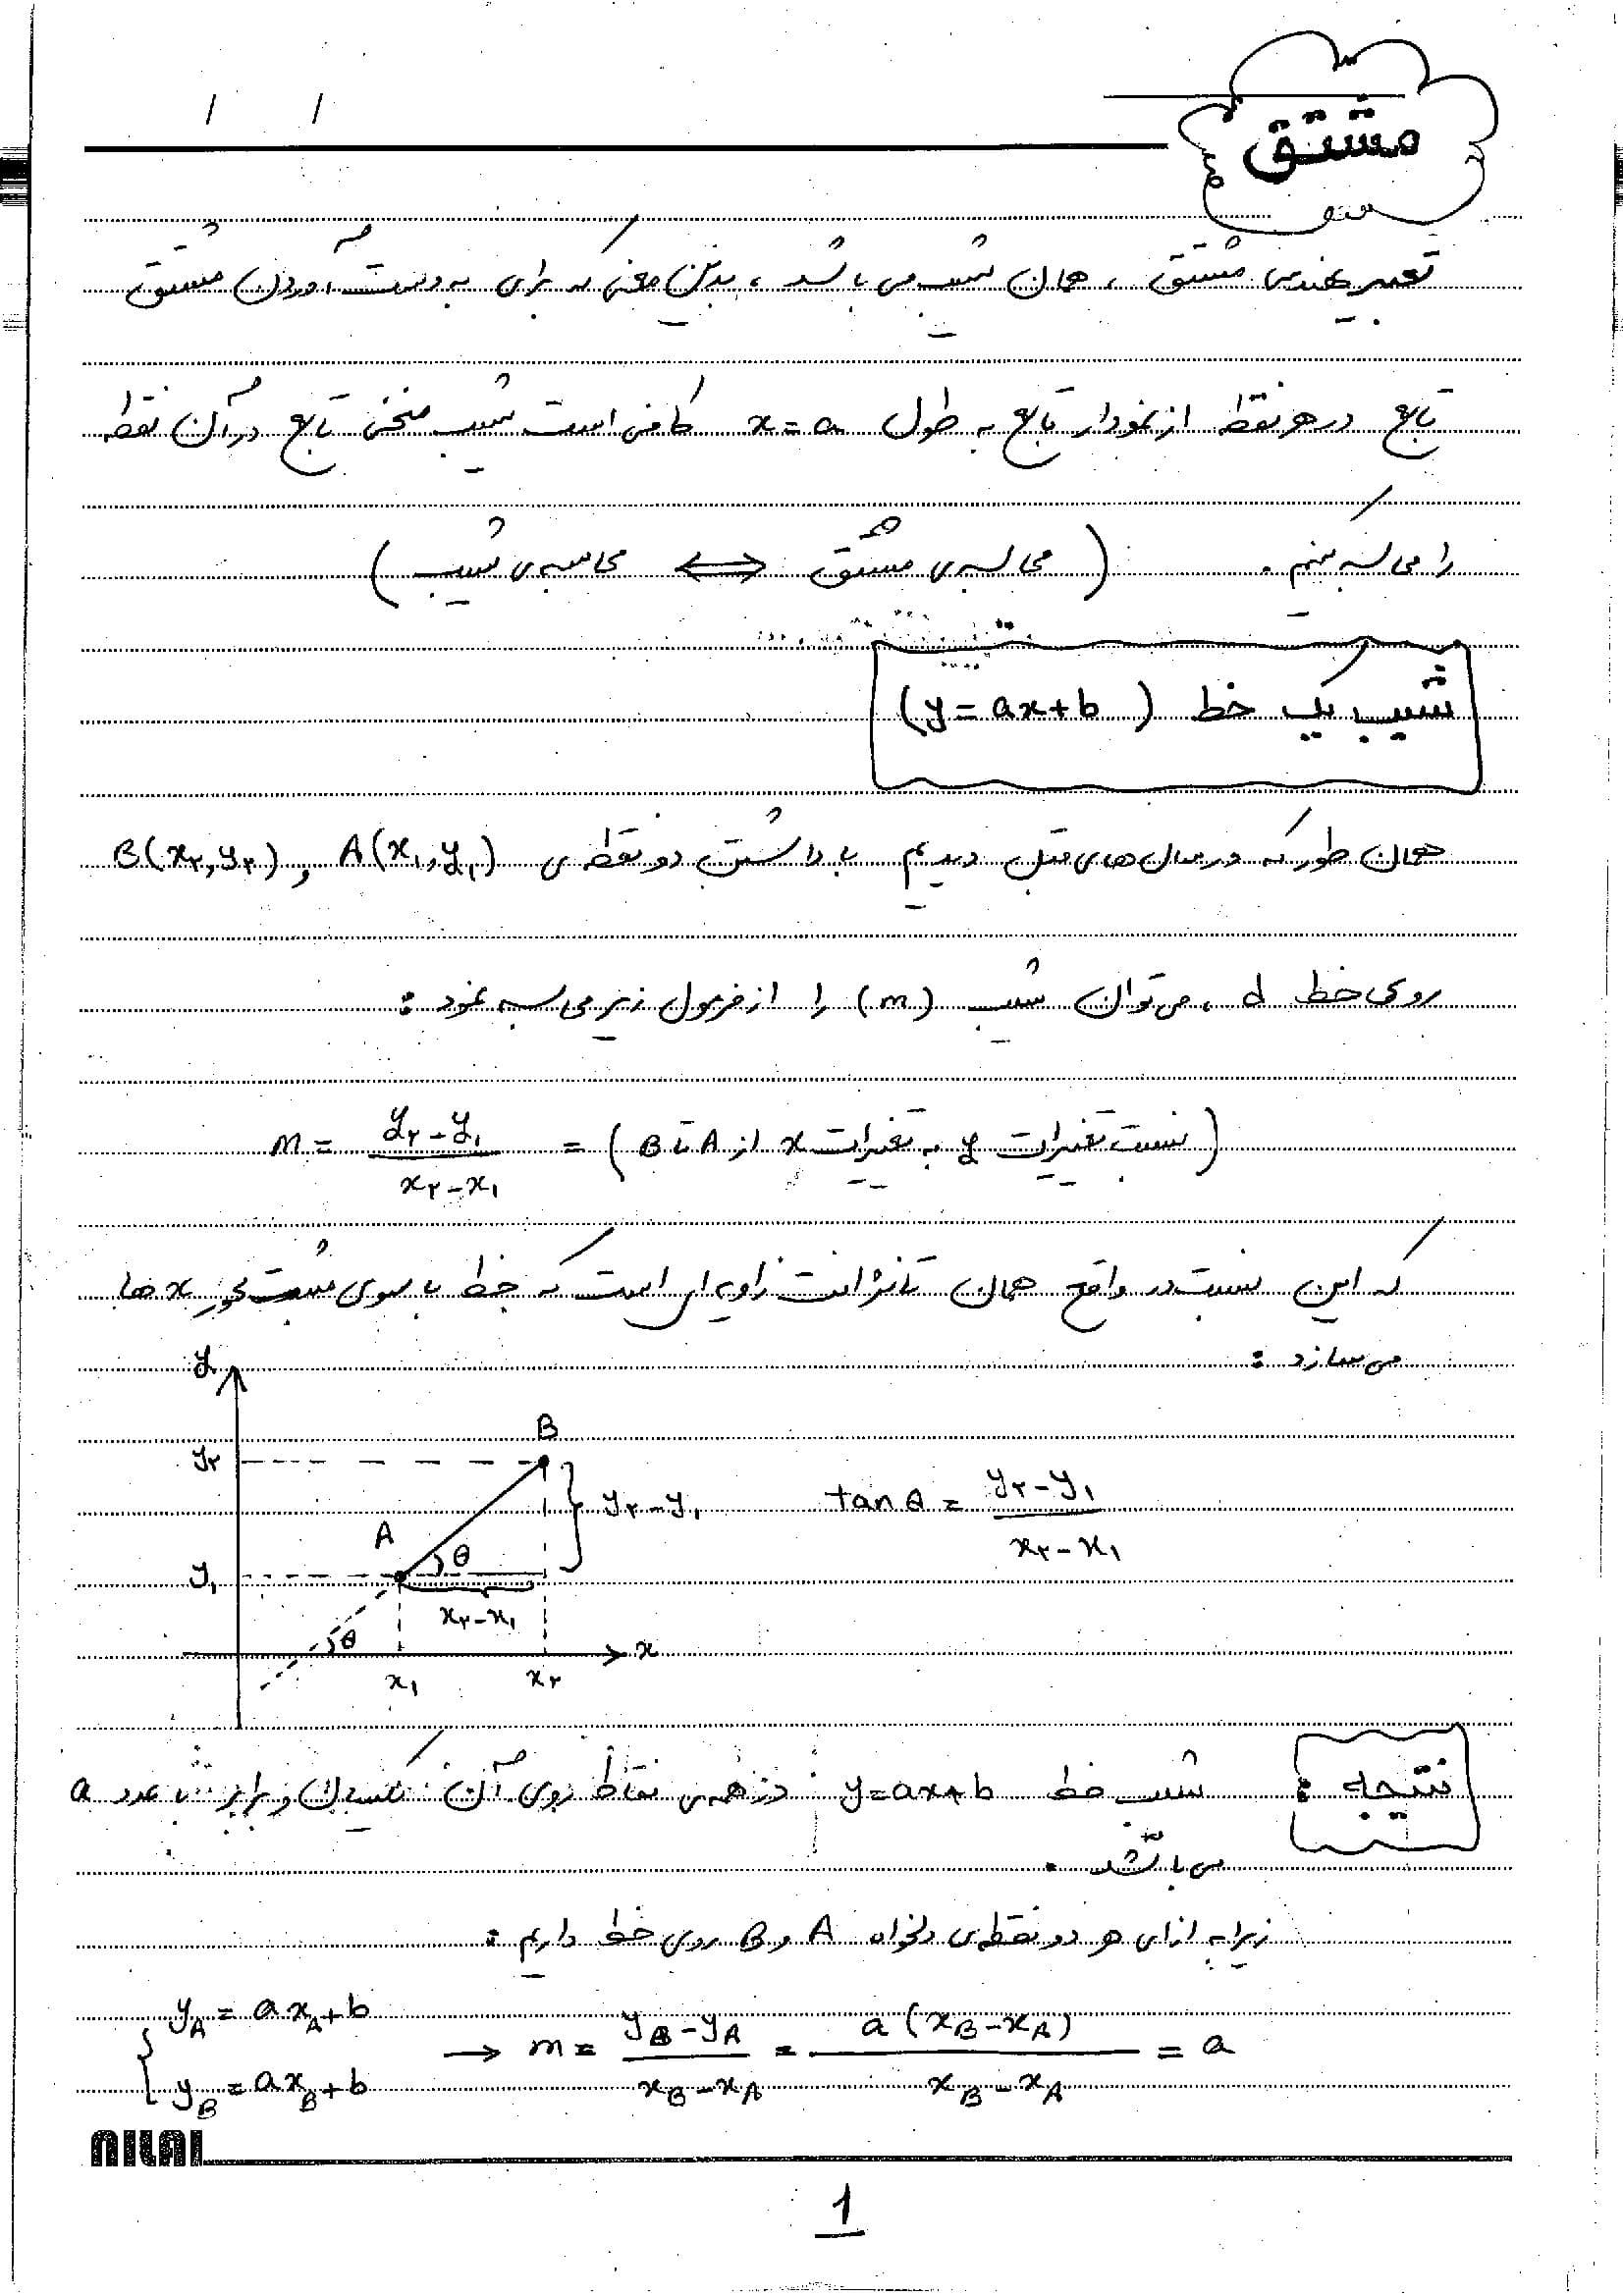 مشتق
تعبیر هندسی مشتق ، همان شیب می باشد ، بدین معنی که برای به دست آوردن مشتق
تابع در هر نقطه از نمودار تابع به طول x = a کافی است شیب منحنی تابع در آن نقطه
را محاسبه کنیم . (محاسبه ی مشتق ⟺ محاسبه ی شیب)
شیب یک خط (y = ax + b)
همان طور که در سال های قبل دیدیم با داشتن دو نقطه ی A(x₁, y₁) و B(x₂, y₂)
روی خط d ، می توان شیب (m) را از فرمول زیر محاسبه نمود :
m = (y₂ - y₁) / (x₂ - x₁) = (نسبت تغییرات y به تغییرات x از A تا B)
که این نسبت در واقع همان تانژانت زاویه ای است که خط با سوی مثبت محور x ها
می سازد :
y
y₂
B
y₂ - y₁
tan θ = (y₂ - y₁) / (x₂ - x₁)
A
θ
y₁
x₂ - x₁
θ
x
x₁
x₂
نتیجه : شیب خط y = ax + b در همه ی نقاط روی آن یکسان و برابر با عدد a
می باشد .
زیرا به ازای هر دو نقطه ی دلخواه A و B روی خط داریم :
{ y_A = a x_A + b
y_B = a x_B + b → m = (y_B - y_A) / (x_B - x_A) = a (x_B - x_A) / (x_B - x_A) = a
NILAI
1